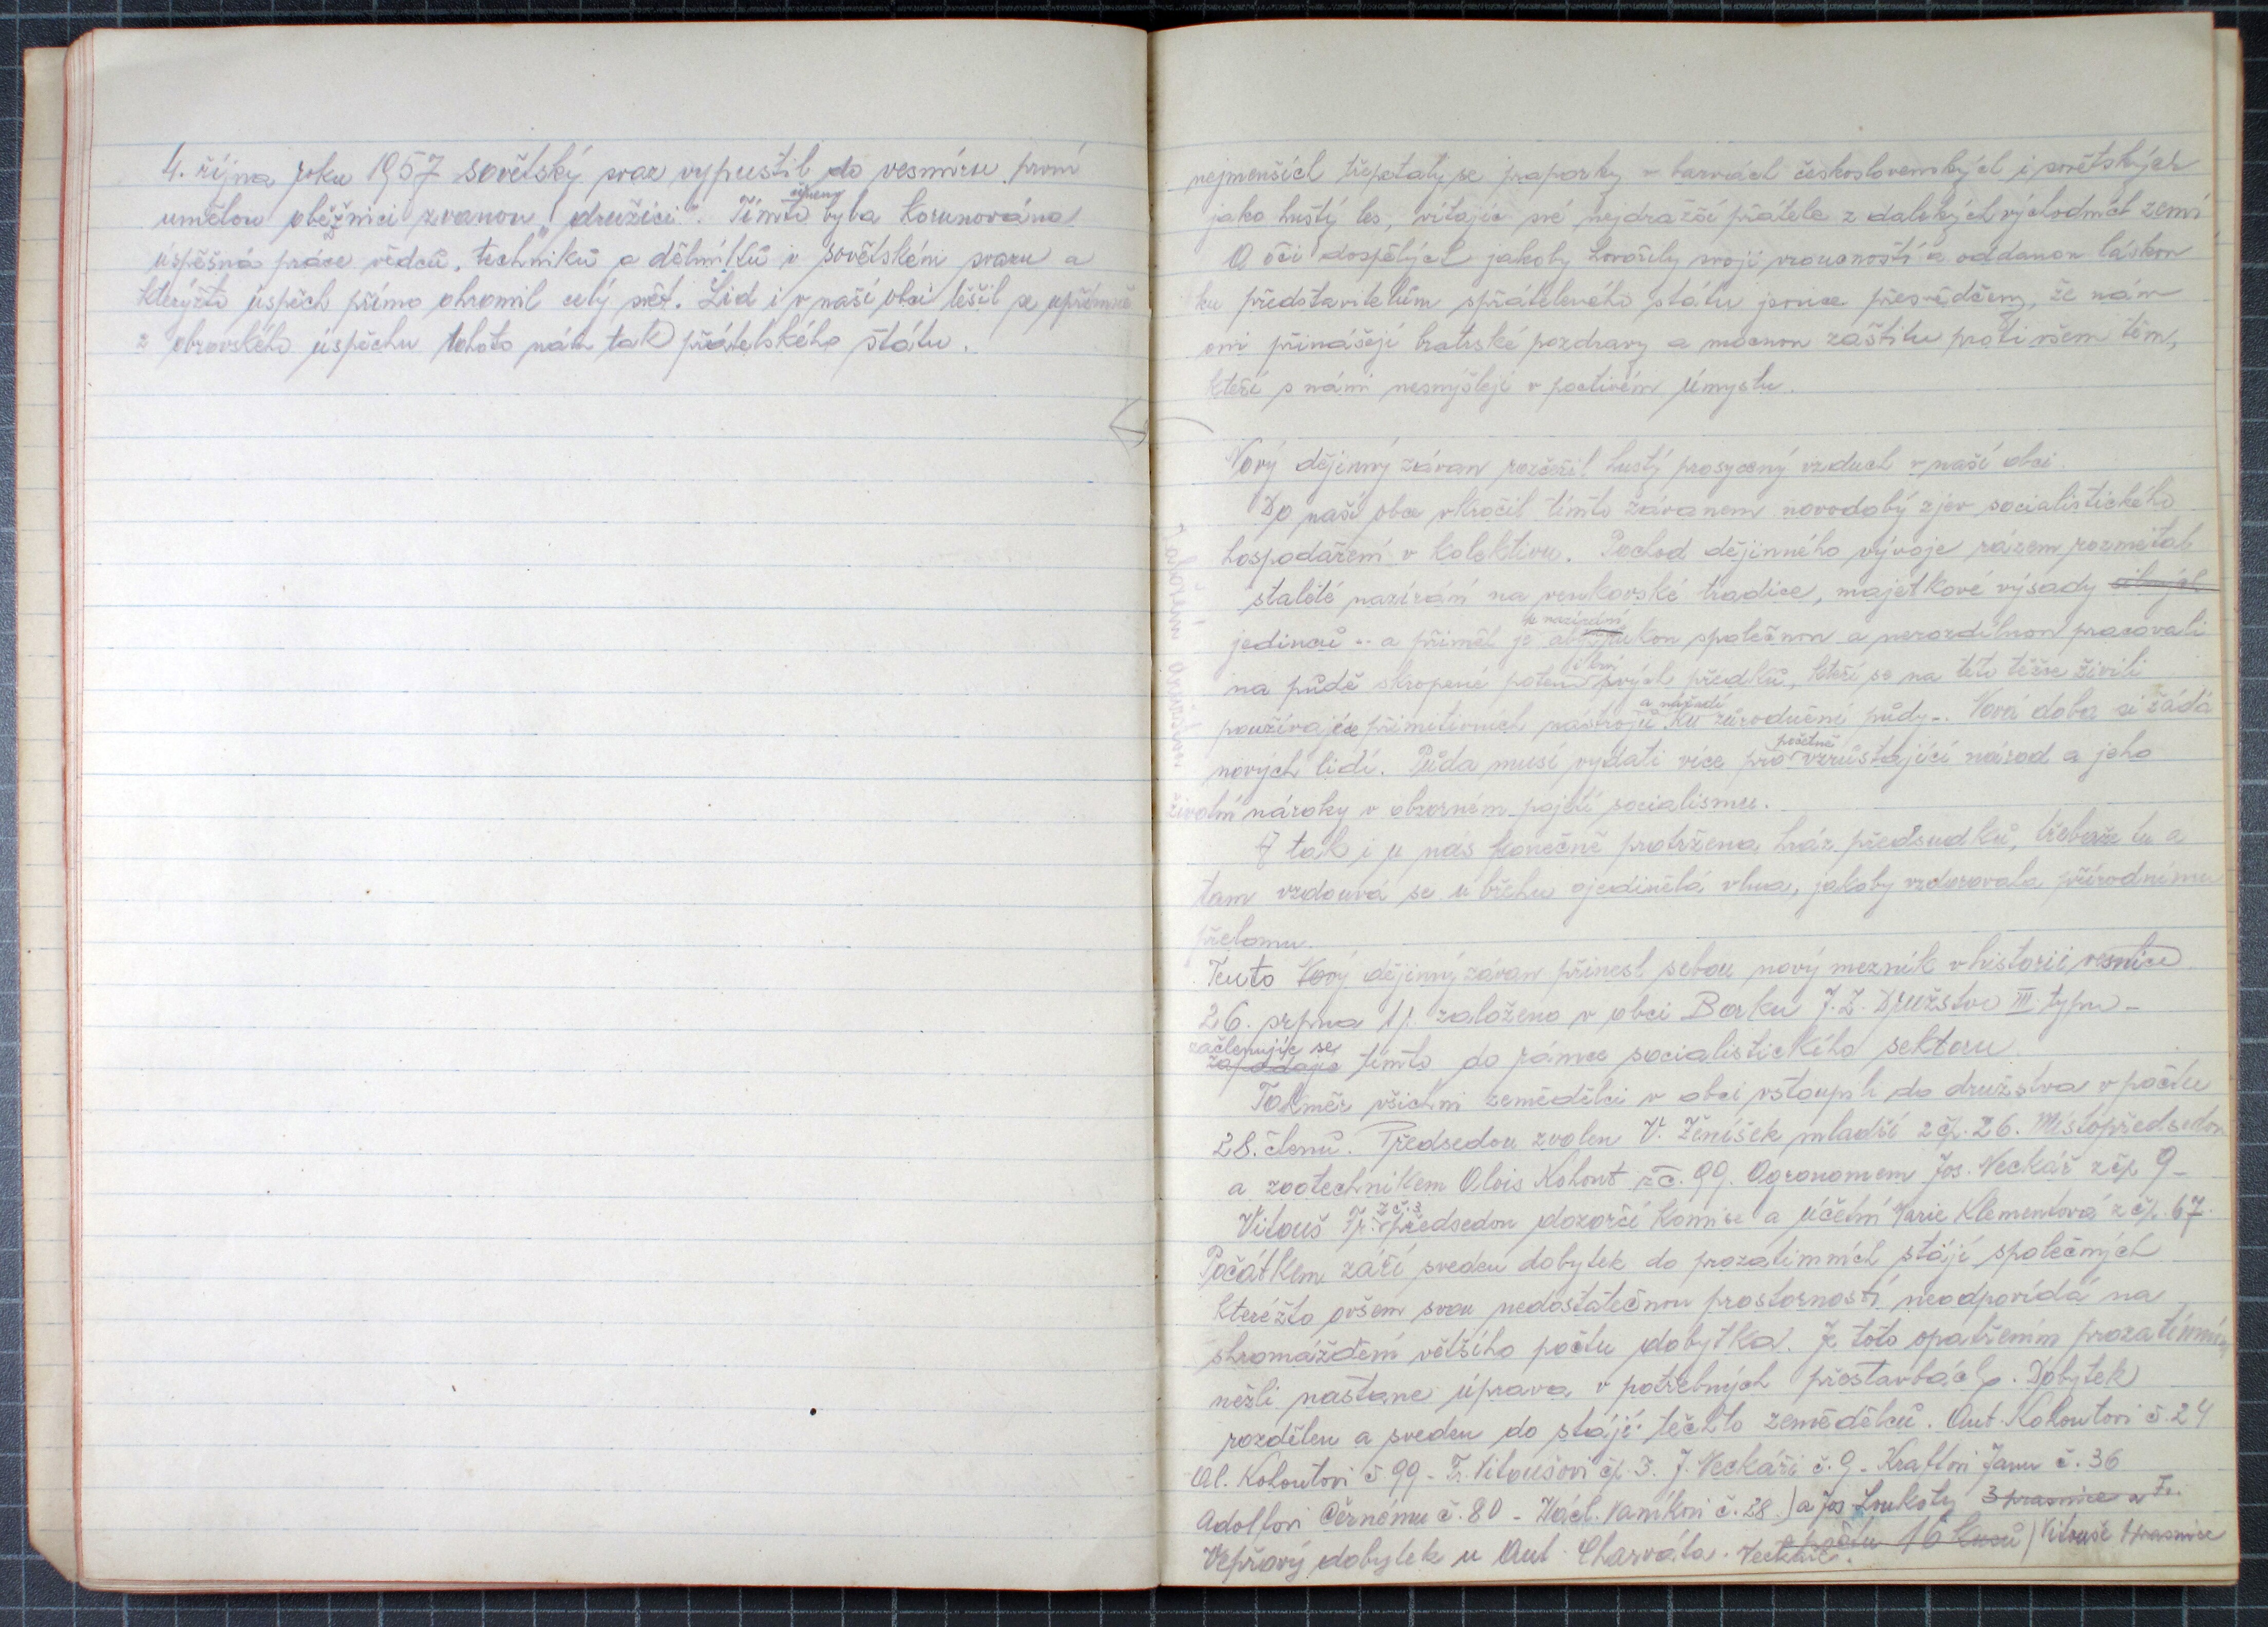 4. října roku 1957 sovětský svaz vypustil do vesmíru první
umělou oběžnici zvanou „družici“. Tímto byla korunována
úspěšná práce vědců, techniků a dělníků v sovětském svazu a
kterýžto úspěch přímo ohromil celý svět. Lid i v naší obci těšil se upřímně
z obrovského úspěchu tohoto nám tak přátelského státu.
nejmenších třepotaly se praporky v barvách československých i sovětských
jako hustý les, vítajíc své nejdražší přátele z dalekých východních zemí
A oči dospělých jakoby hovořily svojí vroucností a oddanou láskou
ku představitelům spřáteleného státu jsouce přesvědčeny, že nám
oni přinášejí bratrské pozdravy a mocnou záštitu proti všem těm,
kteří s námi nesmýšlejí v poctivém úmyslu.
Nový dějinný závan rozčeřil hustý prosycený vzduch v naší obci.
Do naší obce vkročil tímto závanem novodobý zjev socialistického
hospodaření v kolektivu. Pochod dějinného vývoje rázem rozmetal
staleté nazírání na venkovské tradice, majetkové výsady
k nazírání
jedinců - a přiměl je rukou společnou a nerozdílnou pracovati
i krví
na půdě skropené potem svých předků, kteří se na této těžce živili
a nářadí
používajíce primitivních nástrojů ku zúrodnění půdy -. Nová doba si žádá
početně
nových lidí. Půda musí vydati více pro vzrůstající národ a jeho
životní nároky v obzorném pojetí socialismu.
A tak i u nás konečně protržena hráz předsudků, třebaže tu a
tam vzdouvá se u břehu ojedinělá vlna, jakoby vzdorovala přírodnímu
přelomu.
Tento Nový dějinný závan přinesl sebou nový mezník v historii vesnice
26. srpna t.r. založeno v obci Borku J.Z. Družstvo III typu -
začlenujíc se
zapadajíc tímto do rámce socialistického sektoru
Takměř všichni zemědělci v obci vstoupili do družstva v počtu
28. členů. Předsedou zvolen V. Ženíšek mladší z čp. 26. Místopředsedou
a zootechnikem Alois Kohout z č. 99. Agronomem Jos. Neckář z čp 9 -
z č. 3
Vitouš Fr. předsedou dozorčí komise a účetní Marie Klementová z čp. 67.
Počátkem září sveden dobytek do prozatimních stájí společných
kteréžto ovšem svou nedostatečnou prostorností neodpovídá na
shromáždění většího počtu dobytka. Je toto opatřením prozatimním
nežli nastane úprava v potřebných přestavbách. Dobytek
rozdělen a sveden do stájí těchto zemědělců. Ant. Kohoutovi č. 24
Al. Kohoutovi č 99 - Fr. Vitoušovi čp. 3. J. Neckáři č. 9 - Kraftovi Janu č. 36
Adolfovi Černému č. 80 - Václ. Vaníkovi č. 28.) a Jos Loukoty 3 prasnice u Fr.
Vepřový dobytek u Ant. Charváta. Neckáře. počtu 16 kusů) Vitouše prasnice